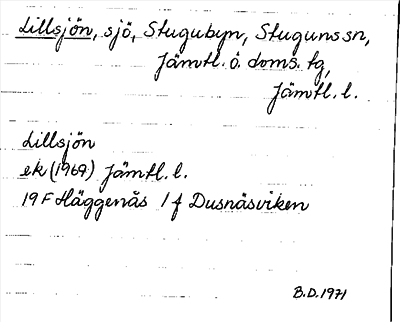 Lillsjön, sjö, Stugubyn, Stuguns sn,
Jämtl. ö. doms. tg,
Jämtl. l.
Lillsjön
ek (1969) Jämtl. l.
19 F Häggenås 1 f Dusnäsviken
B.D. 1971